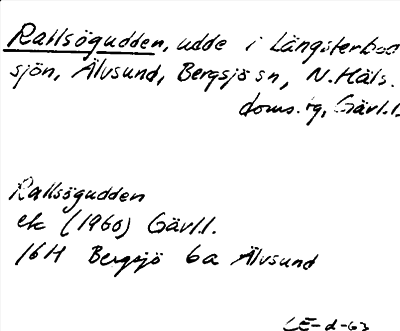 Rallsögudden, udde i Långsterbo-
sjön, Älvsund, Bergsjö sn, N. Häls.
doms. sg, Gävl.l.
Rallsögudden
ek (1960) Gävl.l.
16H Bergsjö 6a Älvsund
CE-d-63